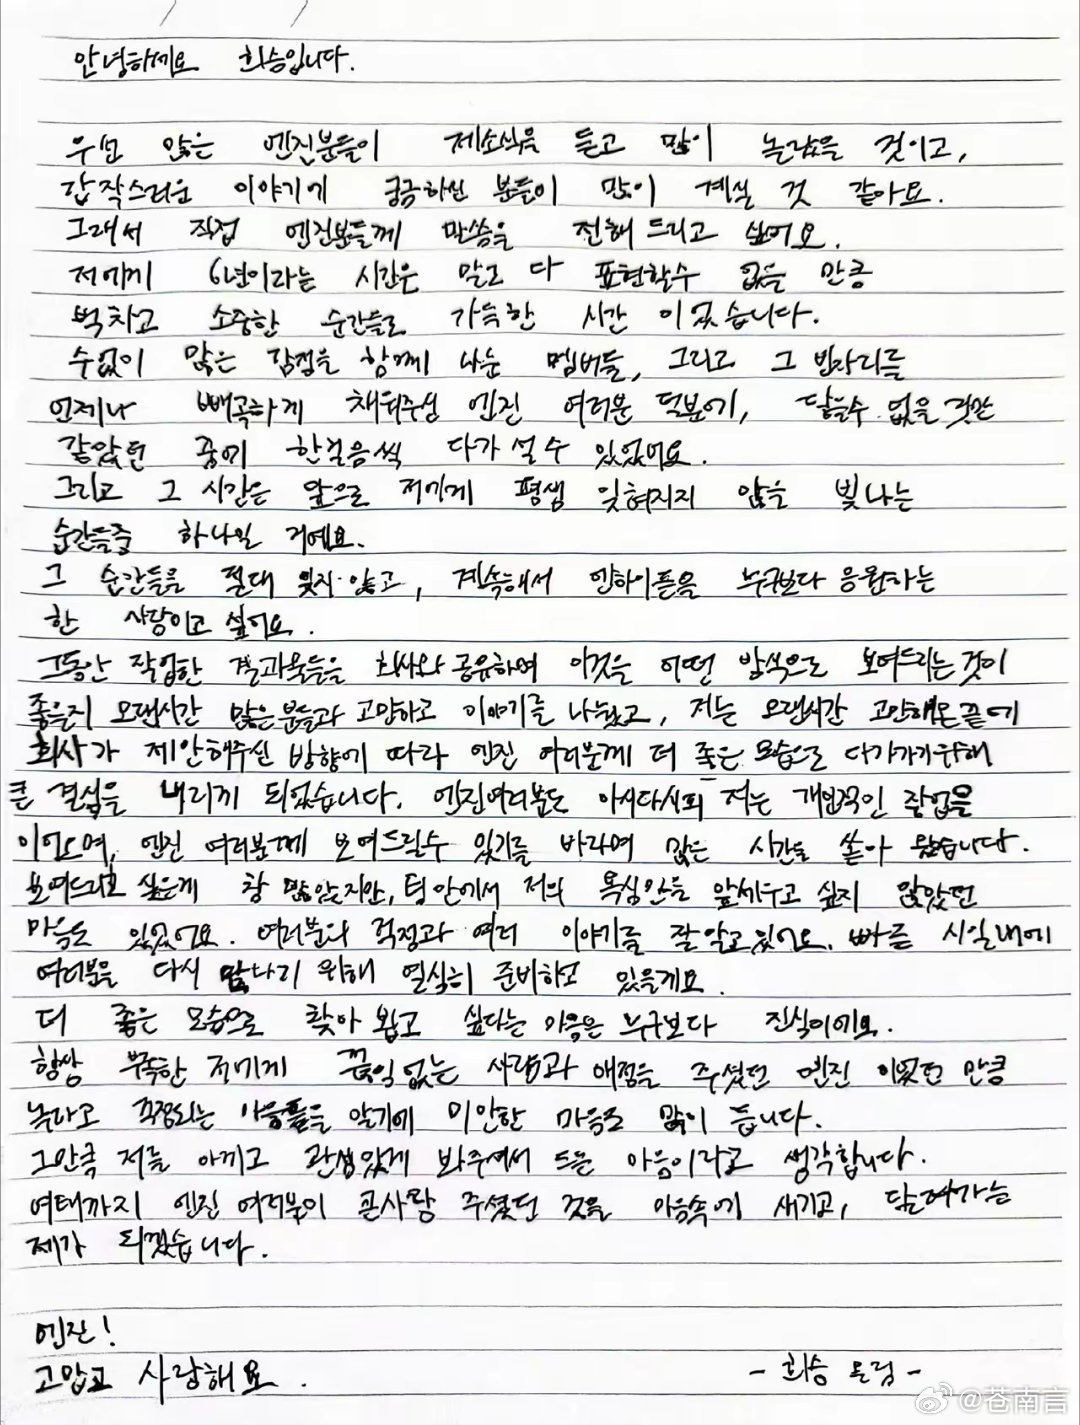 안녕하세요 희승입니다.
우선 많은 엔진분들이 제소식을 듣고 많이 놀랐을 것이고,
갑작스러운 이야기에 궁금하신 분들이 많이 계실 것 같아요.
그래서 직접 엔진분들께 말씀을 전해 드리고 싶어요.
저에게 6년이라는 시간은 말로 다 표현할수 없을 만큼
벅차고 소중한 순간들로 가득한 시간 이었습니다.
수없이 많은 감정을 함께 나눈 멤버들, 그리고 그 빈자리를
언제나 빼곡하게 채워주신 엔진 여러분 덕분에, 닿을수 없을 것만
같았던 꿈에 한걸음씩 다가 설 수 있었어요.
그리고 그 시간은 앞으로 저에게 평생 잊혀지지 않을 빛나는
순간들중 하나일 거예요.
그 순간들을 절대 잊지 않고, 계속해서 엔하이픈을 누구보다 응원하는
한 사람이고 싶어요.
그동안 작업한 결과물들을 회사와 공유하며 이것을 어떤 방식으로 보여드리는것이
좋을지 오랜시간 많은분들과 고민하고 이야기를 나눴고, 저는 오랜시간 고민해온끝에
회사가 제안해주신 방향에 따라 엔진 여러분께 더 좋은 모습으로 다가가기위해
큰 결심을 내리게 되었습니다. 엔진여러분도 아시다시피 저는 개인적인 작업을
이어오며, 엔진 여러분께 보여드릴수 있기를 바라며 많은 시간을 쏟아 왔습니다.
보여드리고 싶은게 참 많았지만, 팀 안에서 저의 욕심만을 앞세우고 싶지 않았던
마음도 있었어요. 여러분의 걱정과 여러 이야기를 잘 알고있어요. 빠른 시일내에
여러분을 다시 만나기 위해 열심히 준비하고 있을게요.
더 좋은 모습으로 찾아 뵙고 싶다는 마음은 누구보다 진심이에요.
항상 부족한 저에게 끊임없는 사랑과 애정을 주셨던 엔진 이었던 만큼
놀라고 걱정되는 마음들을 알기에 미안한 마음도 많이 듭니다.
그만큼 저를 아끼고 관심있게 봐주셔서 드는 마음이라고 생각합니다.
여태까지 엔진 여러분이 큰사랑 주셨던 것을 마음속에 새기고, 달려가는
제가 되겠습니다.
엔진!
고맙고 사랑해요.
- 희승 드림 -
@苍南言